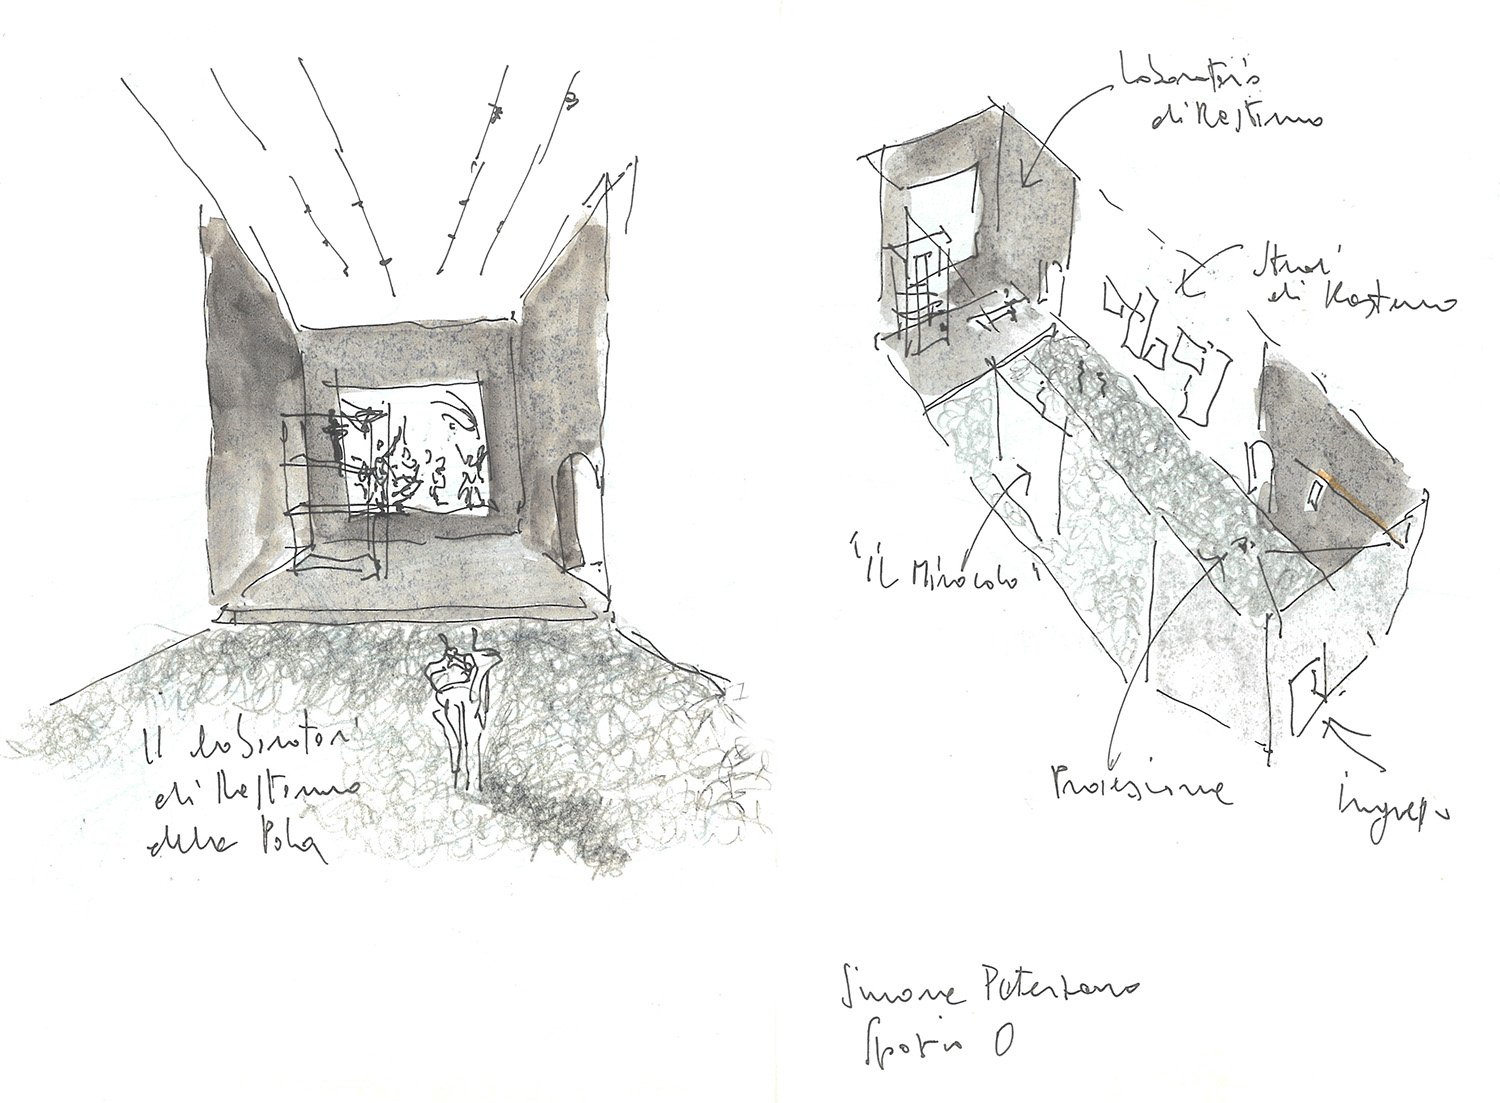 Il laboratori
di Restauro
della Pala
Laboratorio
di Restauro
Studi
di Restauro
"il Miracolo"
Proiezione
ingresso
Simone Peterzano
Spazio 0